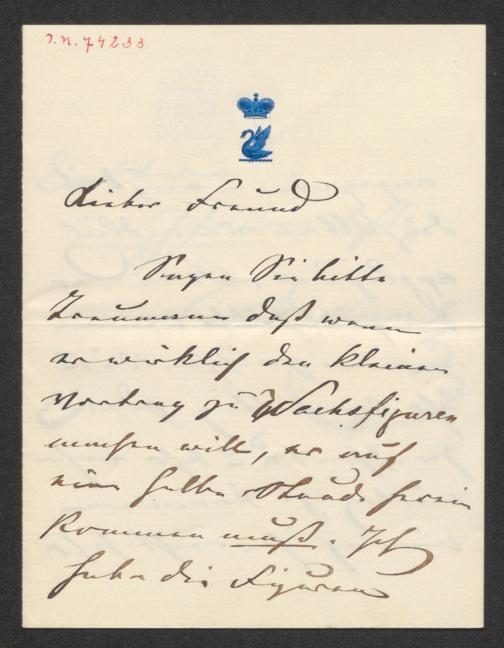 J.N. 74233
Lieber Freund
Sagen Sie bitte
daß wenn
er wirklich den kleinen
Vortrag zu Wachsfiguren
machen will, er auf
eine halbe Stunde herein
kommen muß. Ich
habe die Figuren